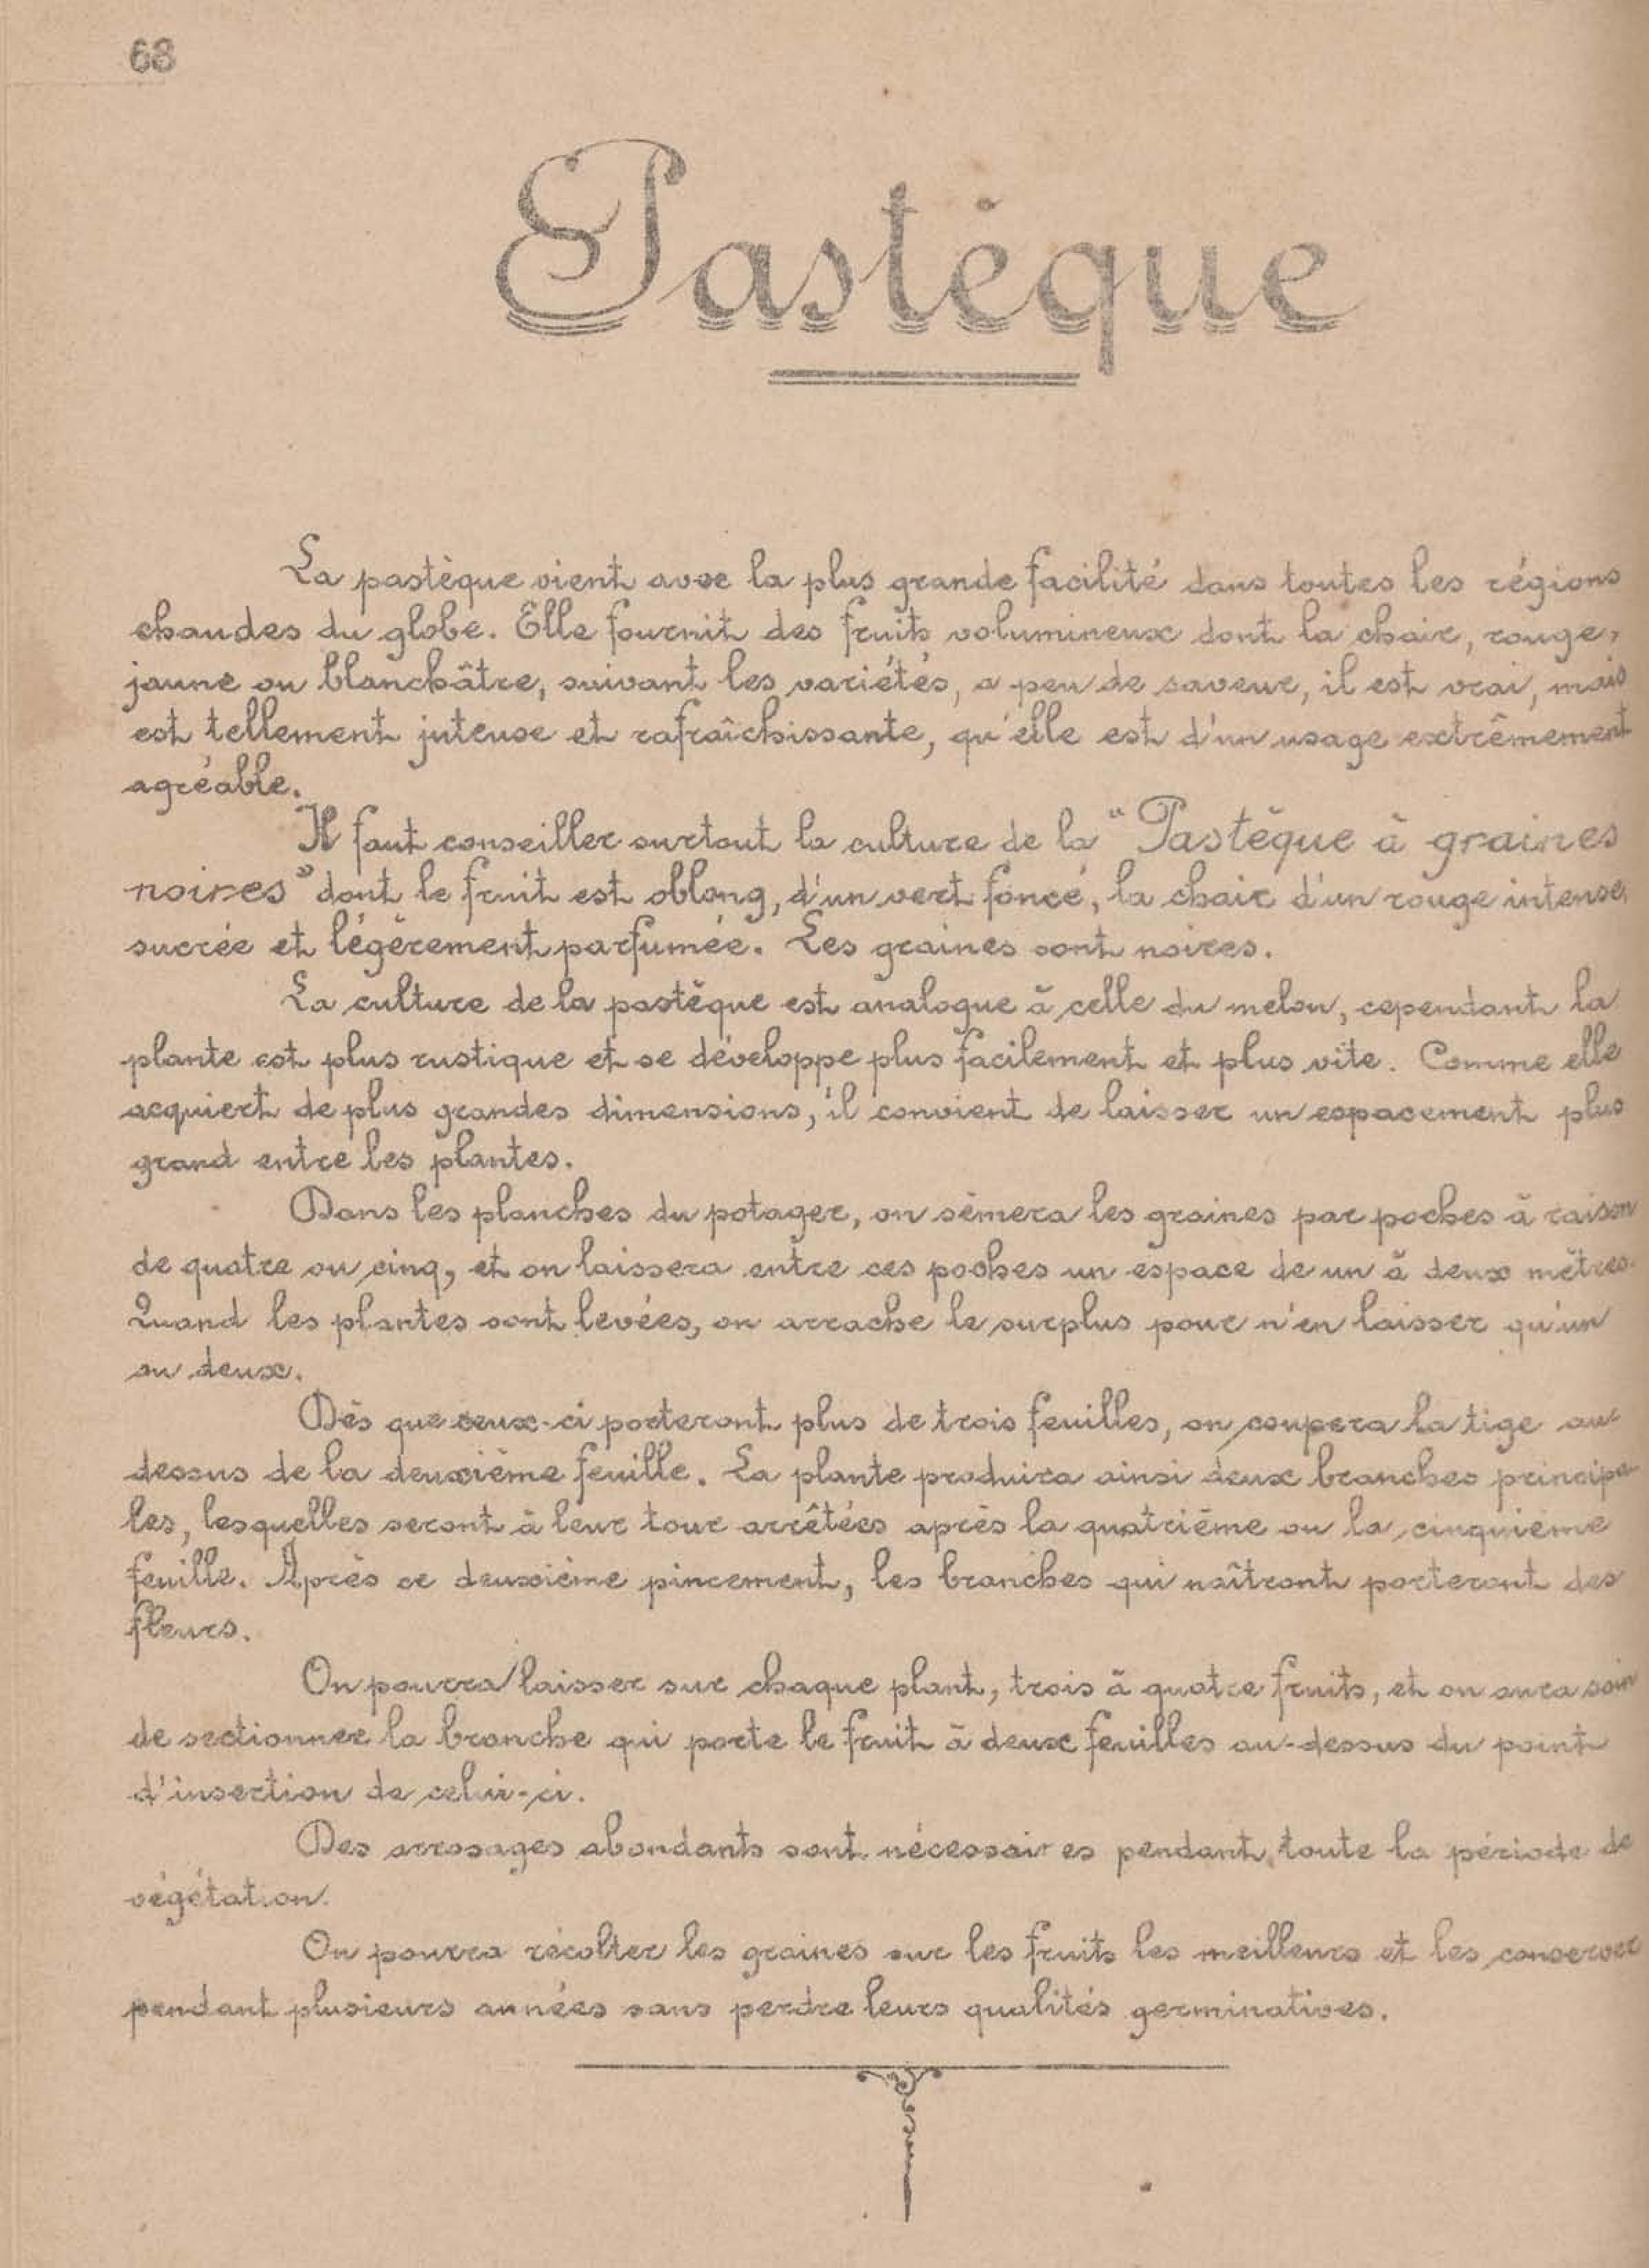 68
Pastèque
La pastèque vient avec la plus grande facilité dans toutes les régions
chaudes du globe. Elle fournit des fruits volumineux dont la chair, rouge,
jaune ou blanchâtre, suivant les variétés, a peu de saveur, il est vrai, mais
est tellement juteuse et rafraîchissante, qu'elle est d'un usage extrêmement
agréable.
Il faut conseiller surtout la culture de la "Pastèque à graines
noires" dont le fruit est oblong, d'un vert foncé, la chair d'un rouge intense,
sucrée et légèrement parfumée. Les graines sont noires.
La culture de la pastèque est analogue à celle du melon, cependant la
plante est plus rustique et se développe plus facilement et plus vite. Comme elle
acquiert de plus grandes dimensions, il convient de laisser un espacement plus
grand entre les plantes.
Dans les planches du potager, on sèmera les graines par poches à raison
de quatre ou cinq, et on laissera entre ces poches un espace de un à deux mètres.
Quand les plantes sont levées, on arrache le surplus pour n'en laisser qu'un
ou deux.
Dès que ceux-ci porteront plus de trois feuilles, on coupera la tige au-
dessus de la deuxième feuille. La plante produira ainsi deux branches principa-
les, lesquelles seront à leur tour arrêtées après la quatrième ou la cinquième
feuille. Après ce deuxième pincement, les branches qui naîtront porteront des
fleurs.
On pourra laisser sur chaque plant, trois à quatre fruits, et on aura soin
de sectionner la branche qui porte le fruit à deux feuilles au-dessus du point
d'insertion de celui-ci.
Des arrosages abondants sont nécessaires pendant toute la période de
végétation.
On pourra récolter les graines sur les fruits les meilleurs et les conserver
pendant plusieurs années sans perdre leurs qualités germinatives.